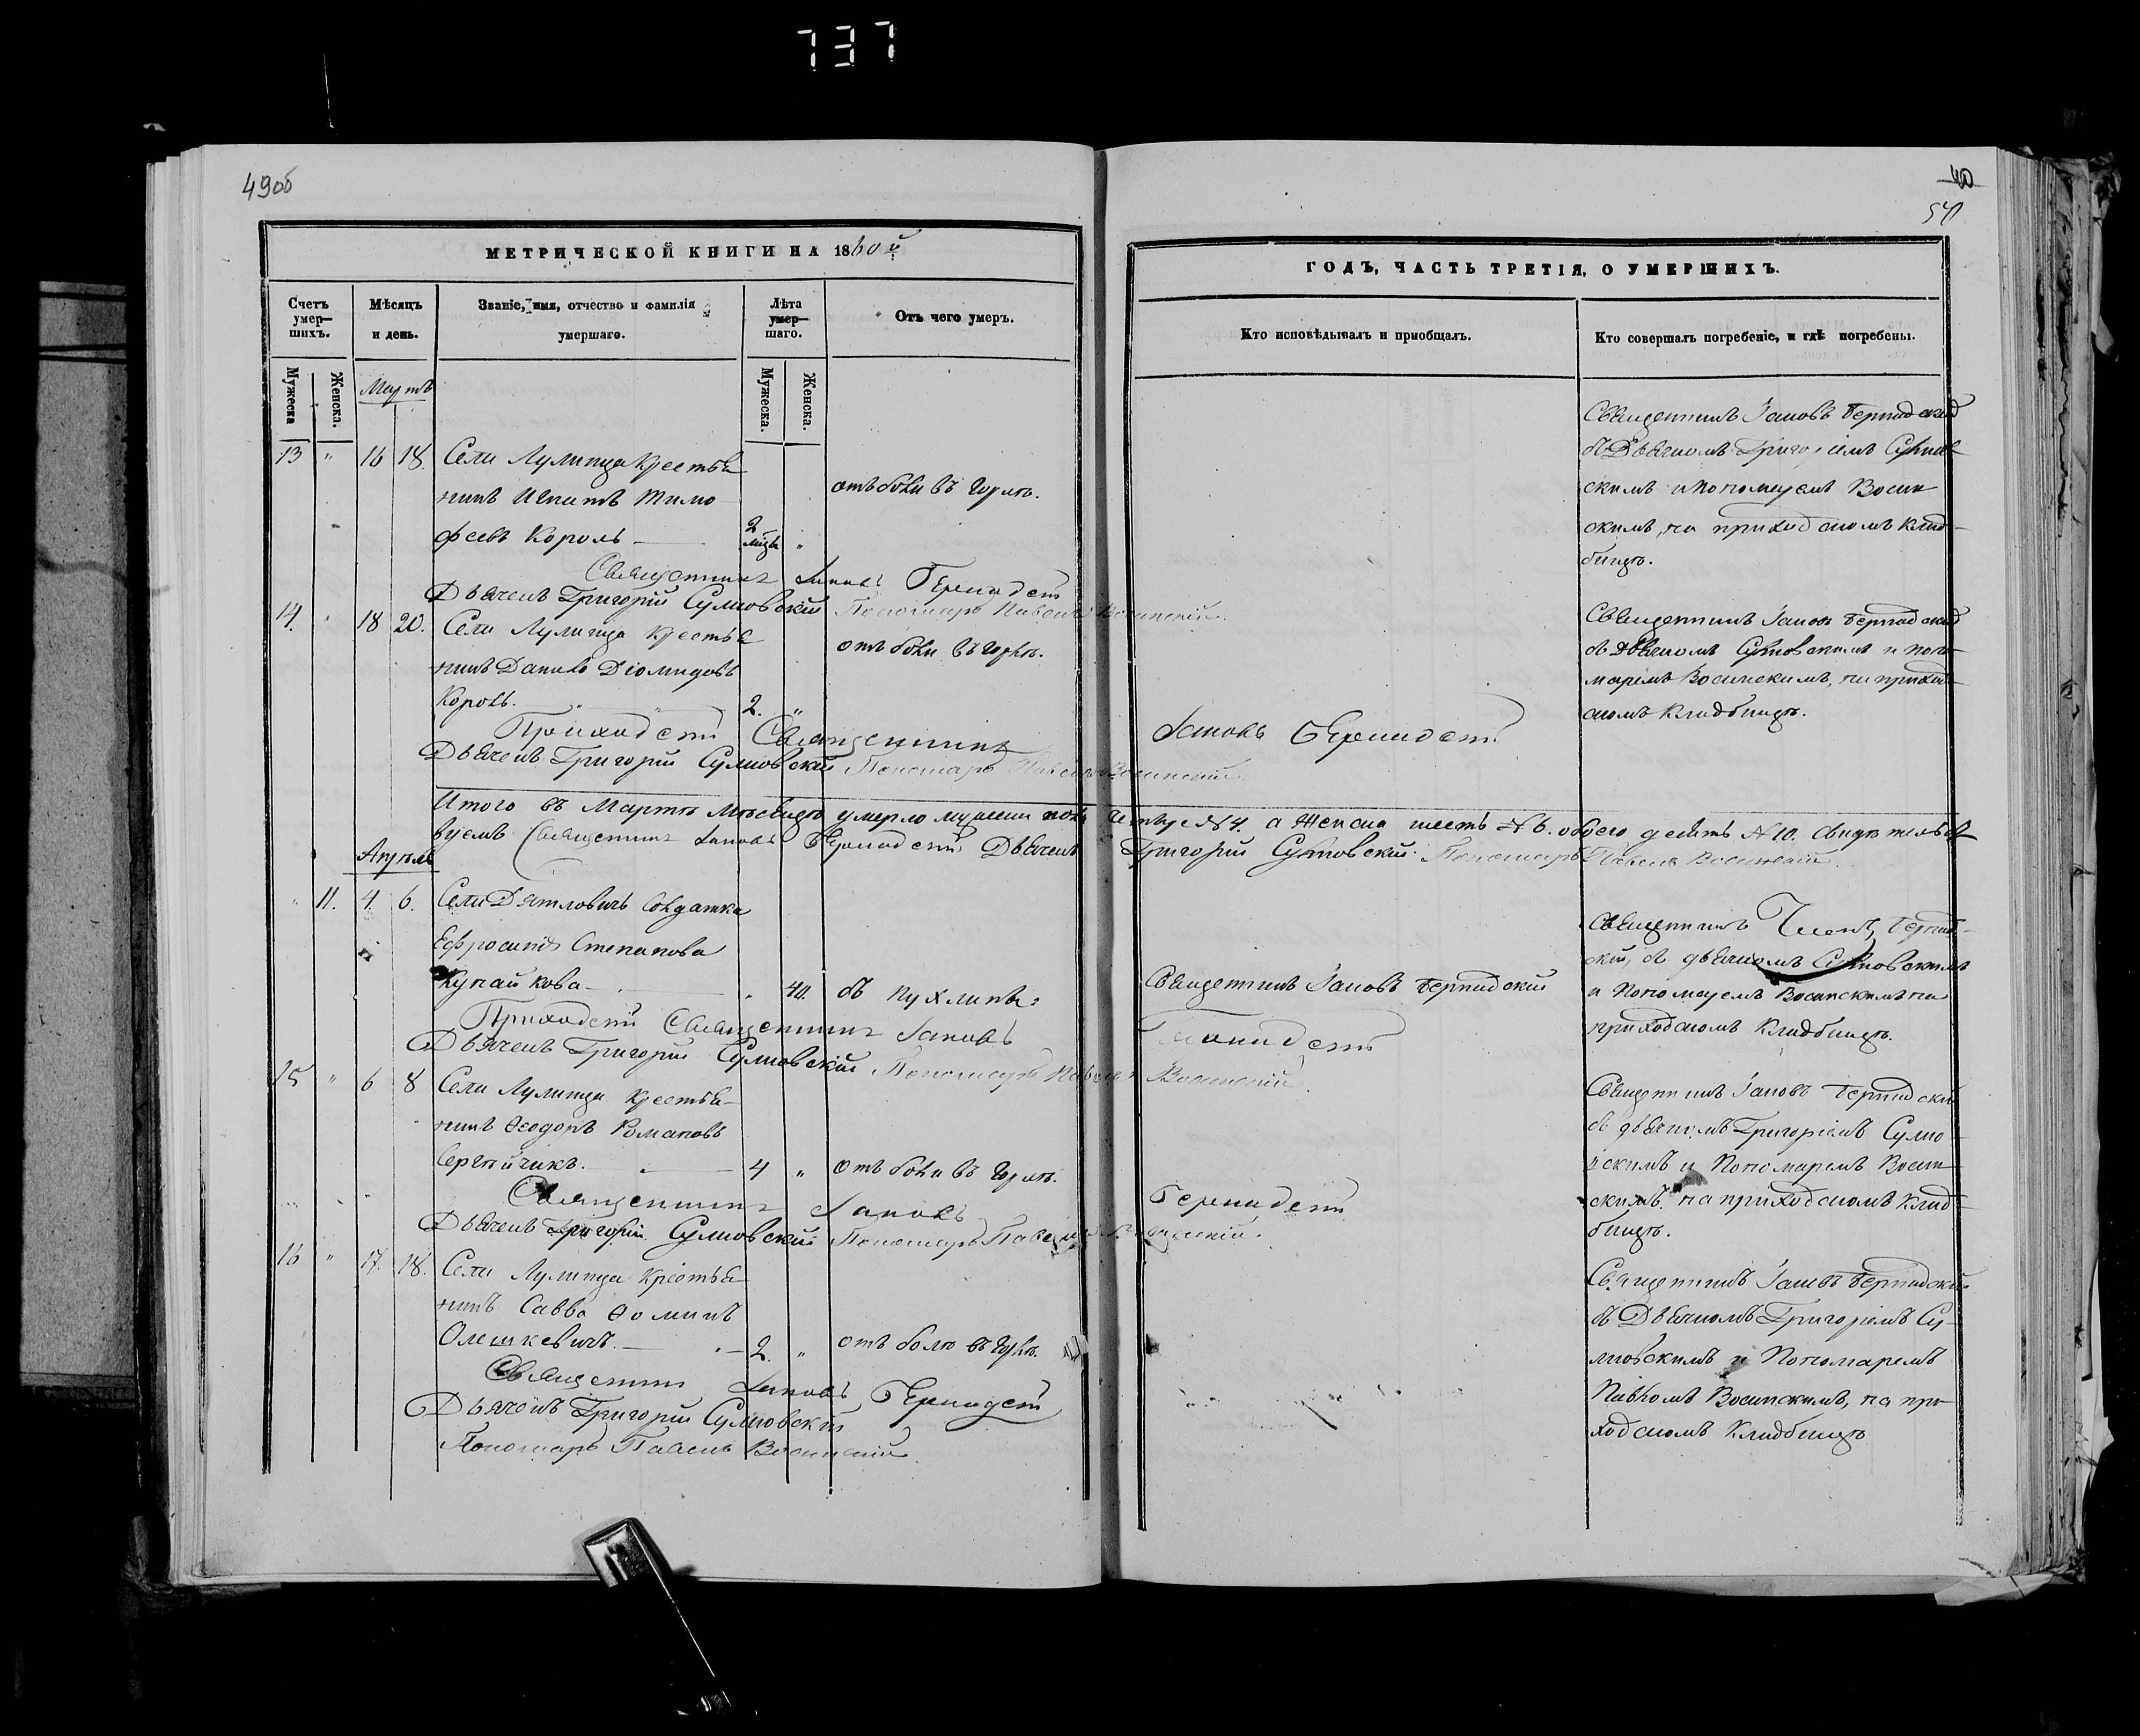 737
49об
40
50
МЕТРИЧЕСКОЙ КНИГИ НА 1860й
ГОДЪ, ЧАСТЬ ТРЕТІЯ, О УМЕРШИХЪ.
Счетъ умер-
шихъ.
Мѣсяцъ
и день.
Званіе, имя, отчество и фамилія
умершаго.
Лѣта
умер-
шаго.
Отъ чего умеръ.
Кто исповѣдывалъ и приобщалъ.
Кто совершалъ погребеніе, и гдѣ погребены.
Мужеска
Женска.
Мужеска.
Женска.
Мартъ
13 " 16 18. Села Лулинца крестья
нинъ Игнатъ Тимо
феевъ Король 2 мцъ "
отъ боли въ горлѣ.
Священникъ Іаковъ Бернадскій
съ Дьячкомъ Григоріемъ Сулков-
скимъ и Пономаремъ Восин
скимъ, на приходскомъ клад-
бищѣ.
Священникъ Іаковъ Бернадскій
Дьячекъ Григорій Сулковскій Пономарь Павелъ Восинскій.
14. " 18 20. Села Лулинца крестья
нинъ Данило Діомидовъ
Король. 2. "
отъ боли въ горлѣ.
Священникъ Іаковъ Бернадскій
съ Дьячкомъ Сулковскимъ и поно-
маремъ Восинскимъ, на приход-
скомъ кладбищѣ.
Приходскій Священникъ Іаковъ Бернадскій
Дьячекъ Григорій Сулковскій Пономарь Павелъ Восинскій
Итого въ Мартѣ мѣсяцѣ умерло мужеска пола четыре №4. а женска шесть №6. обоего десять №10. свидѣтельст
вуемъ Священникъ Іаковъ Бернадскій Дьячекъ Григорій Сулковскій Пономарь Павелъ Восинскій
Апрѣль
" 11. 4. 6. Села Дятловичъ солдатка
Ефросинія Степанова
Купайкова " 40. съ пухлины
Священникъ Іаковъ Бернадскій
Священникъ Бернад-
скій, съ дьячкомъ Сулковскимъ
и Пономаремъ Восинскимъ на
приходскомъ кладбищѣ.
Приходскій Священникъ Іаковъ Бернадскій
Дьячекъ Григорій Сулковскій Пономарь Павелъ Восинскій.
15 " 6 8 Села Лулинца крестья-
нинъ Ѳеодоръ Романовъ
Сергѣйчикъ. 4 " отъ боли въ горлѣ.
Священникъ Іаковъ Бернадскій
съ дьячкомъ Григоріемъ Сулко
вскимъ и Пономаремъ Восин
скимъ. на приходскомъ клад-
бищѣ.
Священникъ Іаковъ Бернадскій
Дьячекъ Григорій Сулковскій Пономарь Павелъ Восинскій.
16 " 17. 18. Села Лулинца крестья
нинъ Савва Ѳоминъ
Олешкевичъ. 2. " отъ болю въ горлѣ.
Священникъ Іаковъ Бернадскій
съ Дьячкомъ Григоріемъ Су-
лковскимъ и Пономаремъ
Павломъ Восинскимъ, на при-
ходскомъ кладбищѣ
Священникъ Іаковъ Бернадскій
Дьячекъ Григорій Сулковскій
Пономарь Павелъ Восинскій